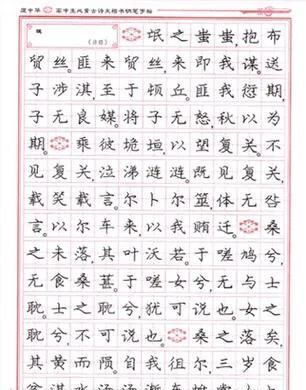 庞中华 高中生必背古诗文楷书钢笔字帖
氓
(诗经)
氓之蚩蚩，抱布
贸丝。匪来贸丝，来即我谋。送
子涉淇，至于顿丘。匪我愆期，
子无良媒。将子无怒，秋以为
期。乘彼垝垣，以望复关。不
见复关，泣涕涟涟。既见复关，
载笑载言。尔卜尔筮，体无咎
言。以尔车来，以我贿迁。桑
之未落，其叶沃若。于嗟鸠兮，
无食桑葚！于嗟女兮，无与士
耽！士之耽兮，犹可说也。女之
耽兮，不可说也。桑之落矣，
其黄而陨。自我徂尔，三岁食